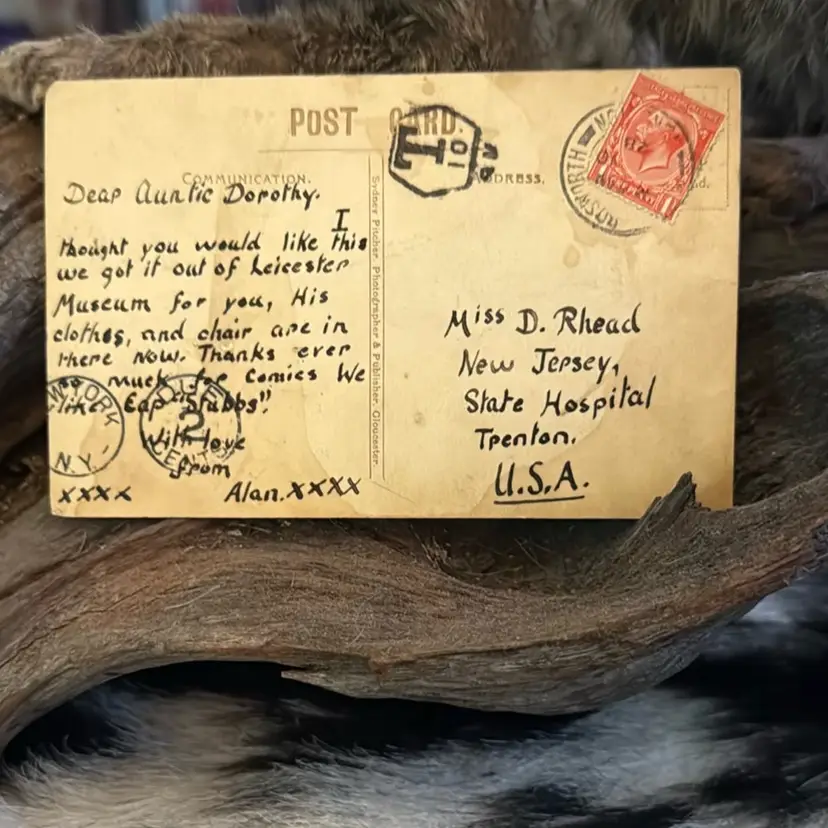 POST CARD.
COMMUNICATION.
ADDRESS.
T
10
Dear Auntie Dorothy.
I
thought you would like this
we got it out of Leicester
Museum for you, His
clothes, and chair are in
there now. Thanks ever
so much for Comics We
like Cap "Stubbs".
With love
from
xxxx Alan.xxxx
NEW YORK
N.Y.
DUE
2
CENTS
Sydney Pitcher, Photographer & Publisher, Gloucester.
BOSWORTH
Miss D. Rhead
New Jersey,
State Hospital
Trenton.
U.S.A.